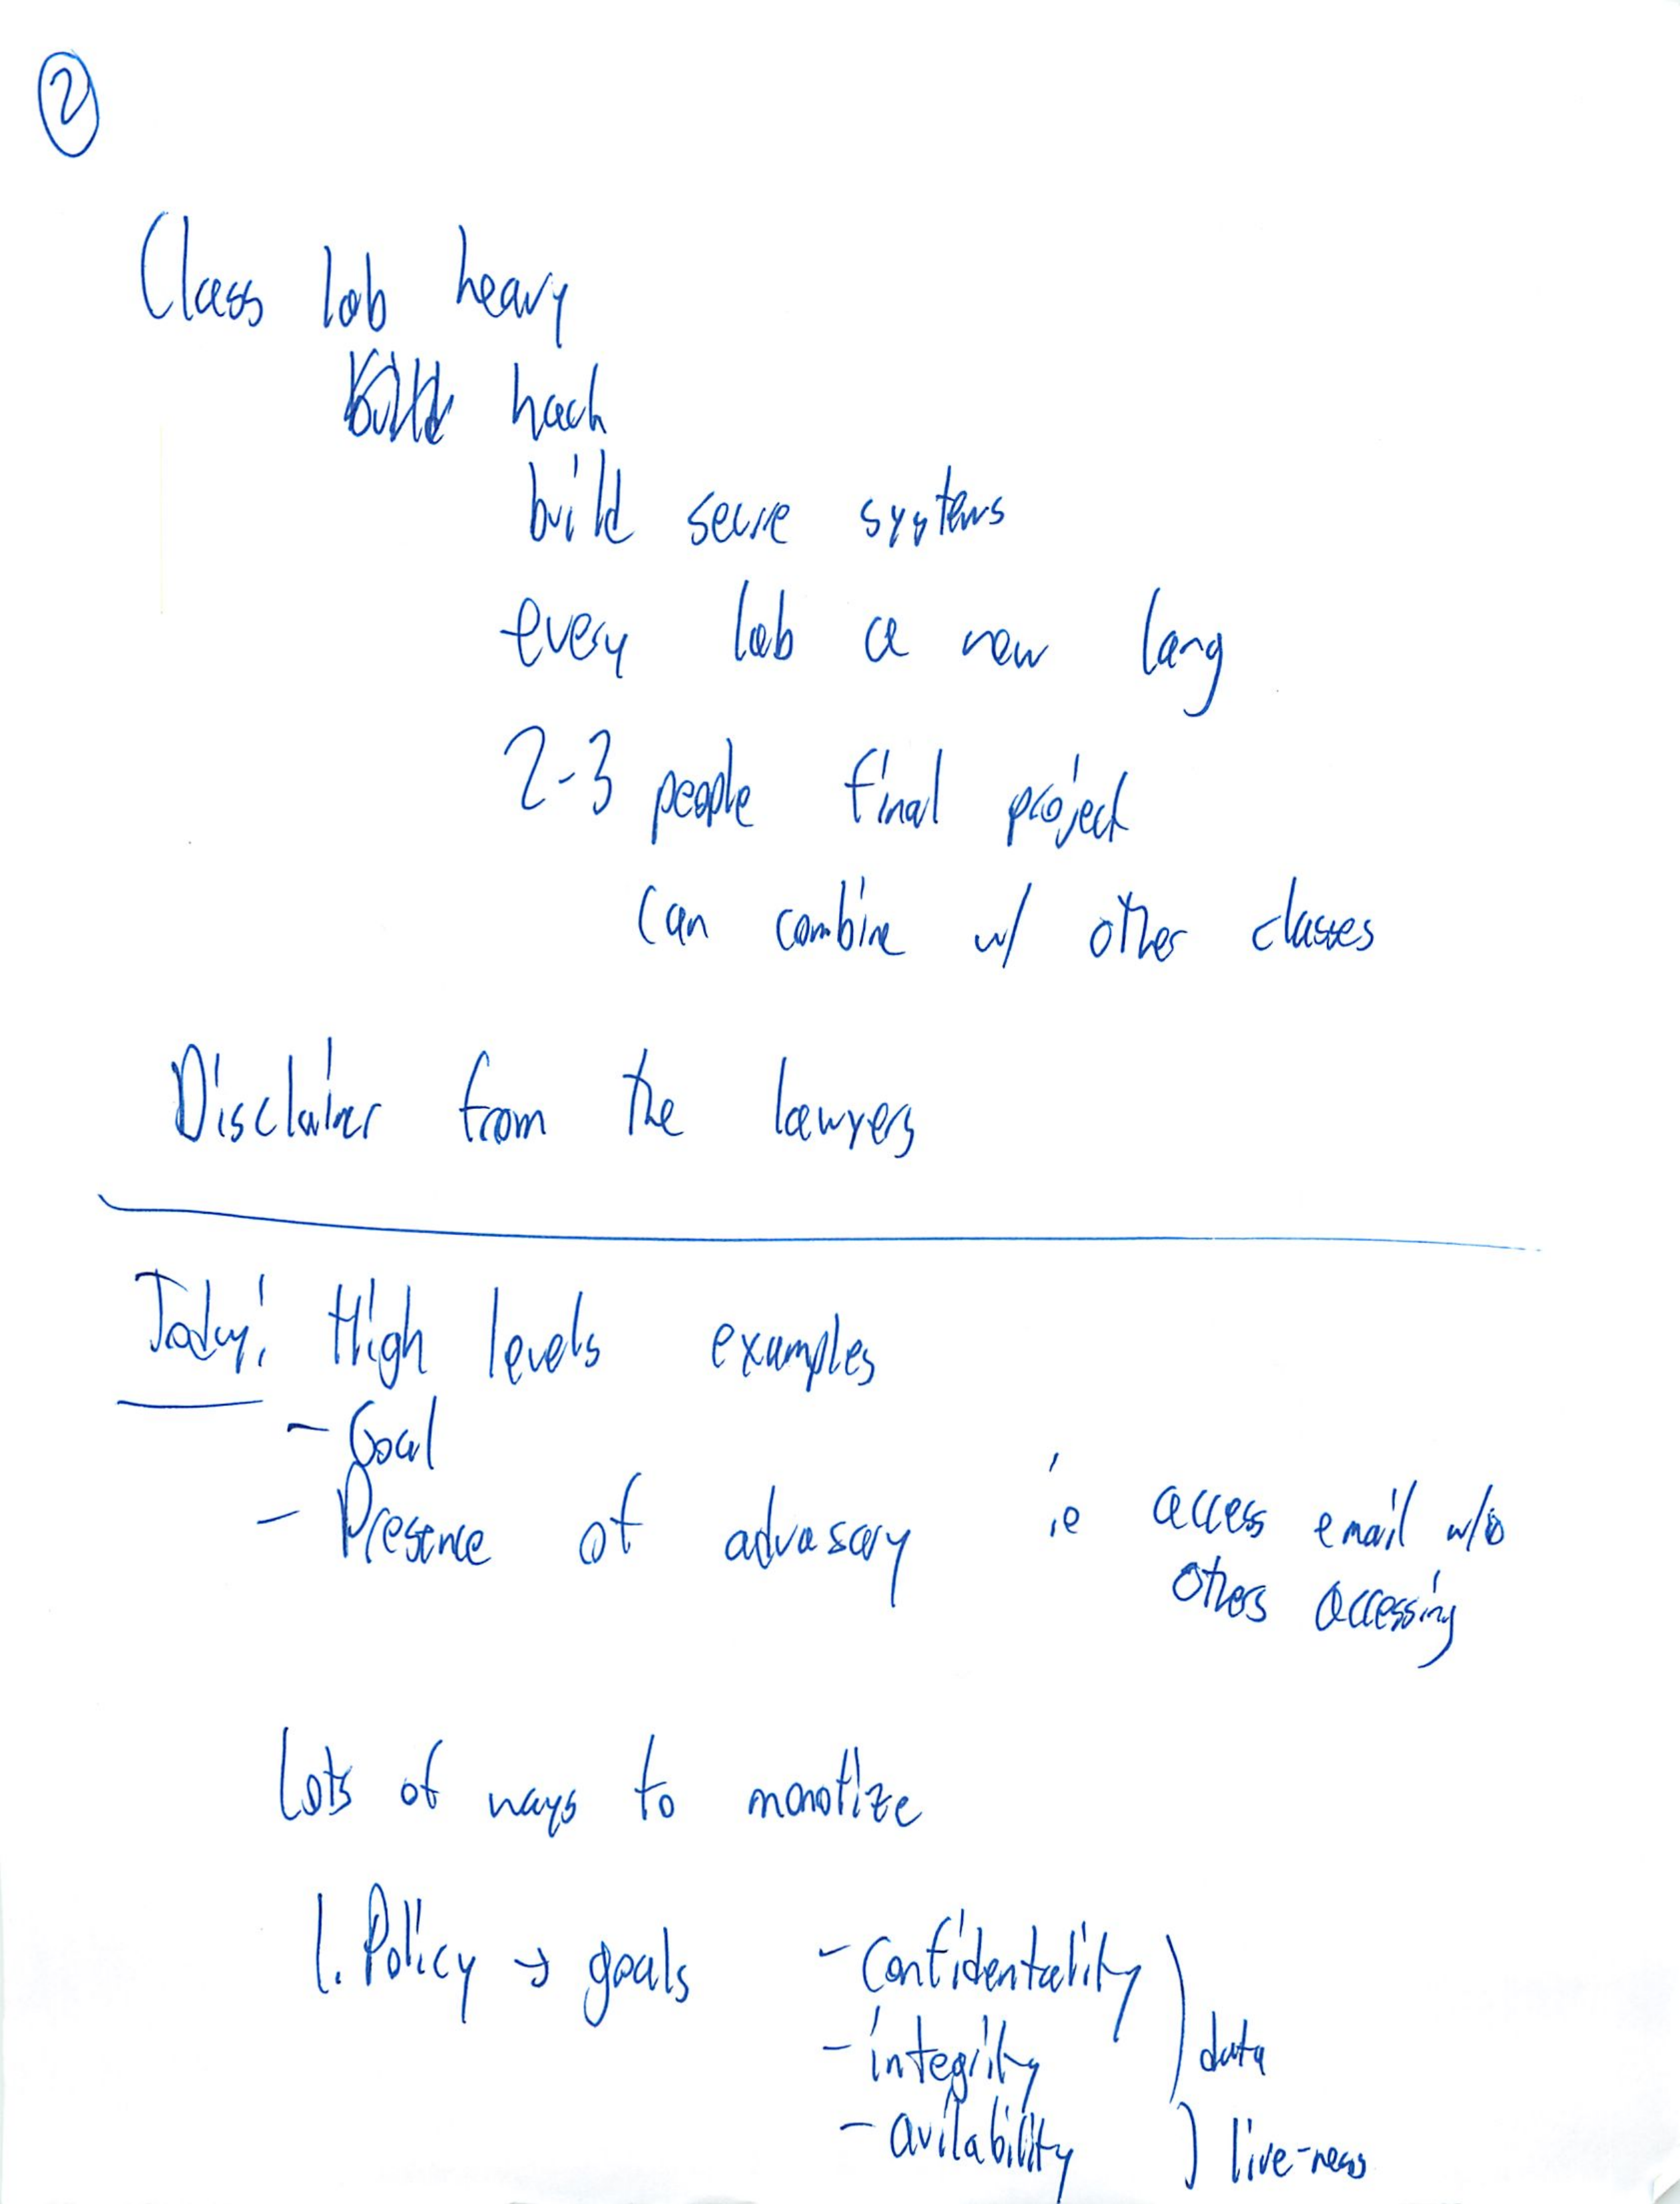 2
Class lab heavy
build hack
build secure systems
every lab a new lang
2-3 people final project
can combine w/ other classes
Disclaimer from the lawyers
Today: High levels examples
- Goal
- Presence of advasary ie access email w/o
others accessing
Lots of ways to monotize
1. Policy → goals - Confidentality
- integrity ) data
- avilability ) live-ness